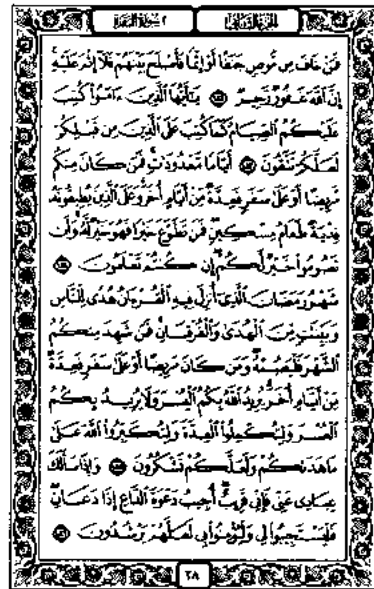 الجزء الثاني ٢ سورة البقرة
فَمَنْ خَافَ مِن مُّوصٍ جَنَفًا أَوْ إِثْمًا فَأَصْلَحَ بَيْنَهُمْ فَلَا إِثْمَ عَلَيْهِ
إِنَّ اللَّهَ غَفُورٌ رَّحِيمٌ ١٨٢ يَٰأَيُّهَا الَّذِينَ ءَامَنُوا كُتِبَ
عَلَيْكُمُ الصِّيَامُ كَمَا كُتِبَ عَلَى الَّذِينَ مِن قَبْلِكُمْ
لَعَلَّكُمْ تَتَّقُونَ ١٨٣ أَيَّامًا مَّعْدُودَٰتٍ فَمَن كَانَ مِنكُم
مَّرِيضًا أَوْ عَلَىٰ سَفَرٍ فَعِدَّةٌ مِّنْ أَيَّامٍ أُخَرَ وَعَلَى الَّذِينَ يُطِيقُونَهُ
فِدْيَةٌ طَعَامُ مِسْكِينٍ فَمَن تَطَوَّعَ خَيْرًا فَهُوَ خَيْرٌ لَّهُ وَأَن
تَصُومُوا خَيْرٌ لَّكُمْ إِن كُنتُمْ تَعْلَمُونَ ١٨٤
شَهْرُ رَمَضَانَ الَّذِي أُنزِلَ فِيهِ الْقُرْءَانُ هُدًى لِّلنَّاسِ
وَبَيِّنَٰتٍ مِّنَ الْهُدَىٰ وَالْفُرْقَانِ فَمَن شَهِدَ مِنكُمُ
الشَّهْرَ فَلْيَصُمْهُ وَمَن كَانَ مَرِيضًا أَوْ عَلَىٰ سَفَرٍ فَعِدَّةٌ
مِّنْ أَيَّامٍ أُخَرَ يُرِيدُ اللَّهُ بِكُمُ الْيُسْرَ وَلَا يُرِيدُ بِكُمُ
الْعُسْرَ وَلِتُكْمِلُوا الْعِدَّةَ وَلِتُكَبِّرُوا اللَّهَ عَلَىٰ
مَا هَدَىٰكُمْ وَلَعَلَّكُمْ تَشْكُرُونَ ١٨٥ وَإِذَا سَأَلَكَ
عِبَادِي عَنِّي فَإِنِّي قَرِيبٌ أُجِيبُ دَعْوَةَ الدَّاعِ إِذَا دَعَانِ
فَلْيَسْتَجِيبُوا لِي وَلْيُؤْمِنُوا بِي لَعَلَّهُمْ يَرْشُدُونَ ١٨٦
٢٨